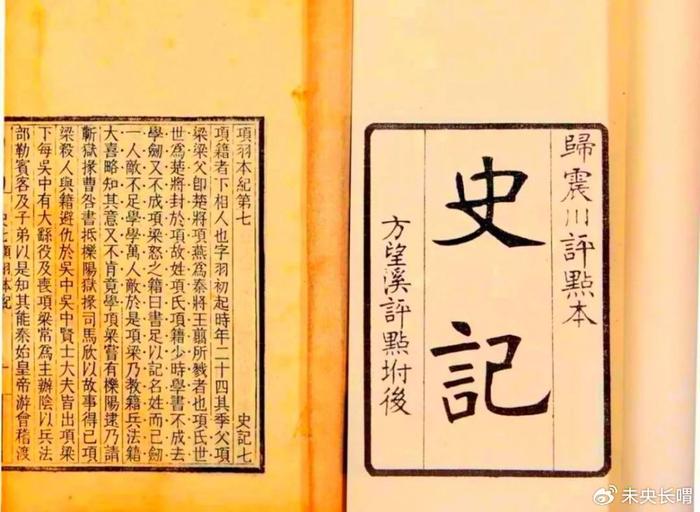 歸震川評點本
史記
方望溪評點坿後
項羽本紀第七 史記七
項籍者下相人也字羽初起時年二十四其季父項
梁梁父卽楚將項燕爲秦將王翦所戮者也項氏世
世爲楚將封於項故姓項氏項籍少時學書不成去
學劒又不成項梁怒之籍曰書足以記名姓而已劒
一人敵不足學學萬人敵於是項梁乃教籍兵法籍
大喜略知其意又不肯竟學項梁嘗有櫟陽逮乃請
蘄獄掾曹咎書抵櫟陽獄掾司馬欣以故事得已項
梁殺人與籍避仇於吳中吳中賢士大夫皆出項梁
下每吳中有大繇役及喪項梁常爲主辦陰以兵法
部勒賓客及子弟以是知其能秦始皇帝游會稽渡
項羽本紀
未央长喟